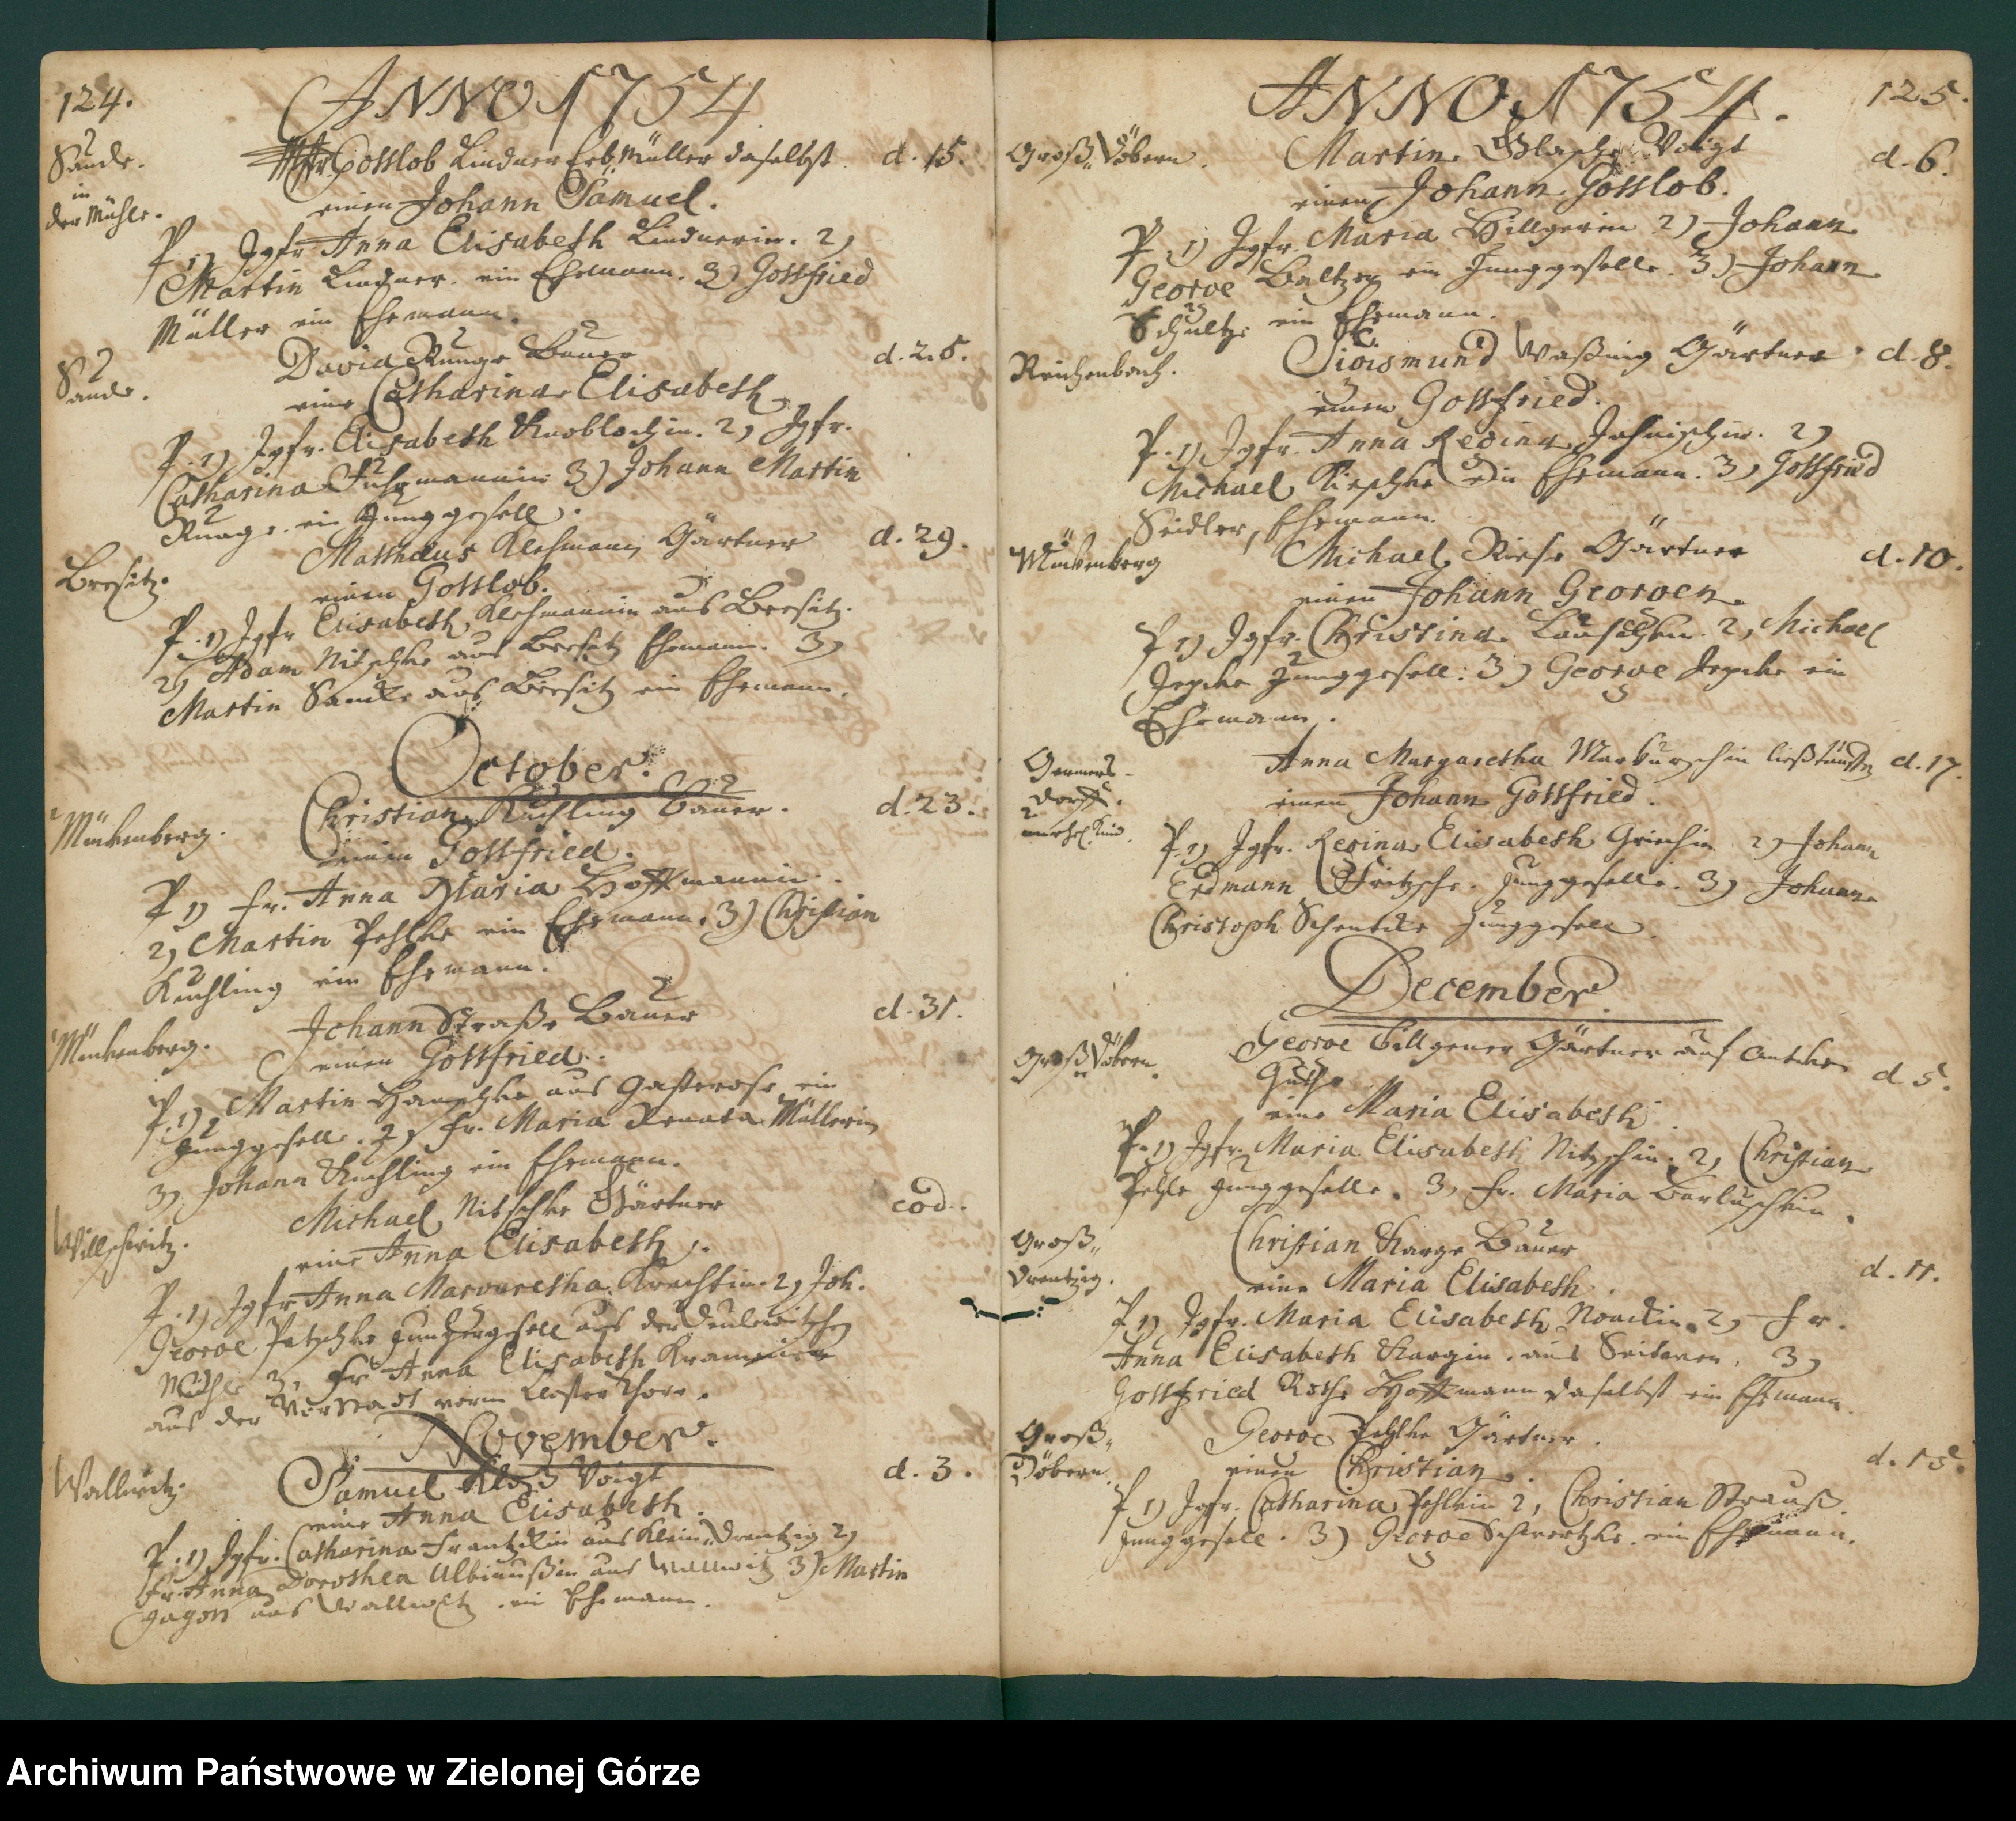 124.
ANNO 1754
Sande.
in
der Mühle.
Mstr Gottlob Lindner Erb Müller daselbst. d. 15.
einen Johann Samuel.
P. 1) Jgfr Anna Elisabeth Lindnerin. 2)
Martin Lindner. ein Ehemann. 3) Gottfried
Müller ein Ehemann.
Sande.
David Runge Bauer d. 25.
eine Catharina Elisabeth
P. 1) Jgfr. Elisabeth Knoblochin. 2) Jgfr.
Catharina Fuhrmannin 3) Johann Martin
Runge. ein Junggesell.
Bresitz.
Matthäus Klehmann Gärtner d. 29.
einen Gottlob.
P. 1) Jgfr Elisabeth Klehmannin aus Bresitz.
2) Adam Nitschke aus Bresitz Ehemann. 3)
Martin Sancke aus Bresitz ein Ehemann.
October.
Mückenberg.
Christian Kuchling Bauer. d. 23.
einen Gottfried.
P 1) Fr. Anna Maria Hoffmannin.
2) Martin Pehlke ein Ehemann. 3) Christian
Kuchling ein Ehemann.
Mückenberg.
Johann Straße Bauer d. 31.
einen Gottfried.
P. 1) Martin aus Gasterose ein
Junggesell. 2) Fr. Maria Renata Müllerin
3) Johann Kuchling ein Ehemann.
Willschwitz.
Michael Nitschke Gärtner eod.
eine Anna Elisabeth.
P. 1) Jgfr Anna Margaretha 2) Joh.
George Petschke aus der
Mühle 3) Fr Anna Elisabeth
aus der Vorstadt vorm Kloster Thore.
November.
Wallwitz.
Samuel Kloß Voigt d. 3.
eine Anna Elisabeth.
P. 1) Jgfr. Catharina Frantzkin aus Klein Drentzig 2)
Fr. Anna Dorothea Albinußin aus Wallwitz 3) Martin
aus Wallwitz. ein Ehemann.
ANNO 1754.
125.
Groß Döbern.
Martin Voigt d. 6.
einen Johann Gottlob.
P. 1) Jgfr. Maria Billgerin 2) Johann
George Baltzer ein Junggeselle. 3) Johann
Schultze ein Ehemann.
Reichenbach.
Sigismund Gärtner d. 8.
einen Gottfried.
P. 1) Jgfr. Anna Regina 2)
Michael ein Ehemann. 3) Gottfried
Seidler, Ehemann.
Mückenberg
Michael Riese Gärtner d. 10.
einen Johann Georgen.
P 1) Jgfr. Christina 2) Michael
Junggesell: 3) George ein
Ehemann.
Germers-
dorff.
Anna Margaretha d. 17.
einen Johann Gottfried.
P. 1) Jgfr. Regina Elisabeth 2) Johann
Erdmann Fritzsche. Junggeselle. 3) Johann
Christoph Schencke Junggesell.
December
Groß Döbern.
George Billgener Gärtner auf d 5.
Guthe
eine Maria Elisabeth
P. 1) Jgfr. Maria Elisabeth Nitzschin. 2) Christian
Pehle Junggeselle. 3) Fr. Maria
Groß
Drentzig.
Christian Karge Bauer
eine Maria Elisabeth. d. 11.
P 1) Jgfr. Maria Elisabeth Noackin. 2) Fr.
Anna Elisabeth Kargin. aus 3)
Gottfried Rothe Hoffmann daselbst ein Ehemann.
Groß
Döbern.
George Pehlke Gärtner.
einen Christian. d. 15.
P 1) Jgfr. Catharina Pehlkin 2) Christian Strauß
Junggesell. 3) George Schwertzke. ein Ehemann.
Archiwum Państwowe w Zielonej Górze